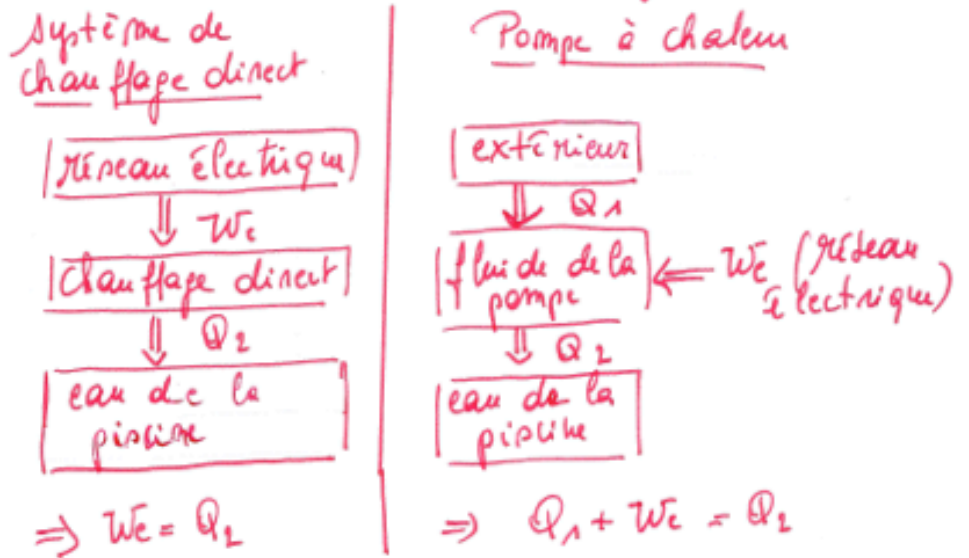 Système de
chauffage direct
réseau électrique
We
Chauffage direct
Q2
eau de la
piscine
⇒ We = Q2
Pompe à chaleur
extérieur
Q1
fluide de la
pompe
We (réseau
électrique)
Q2
eau de la
piscine
⇒ Q1 + We = Q2